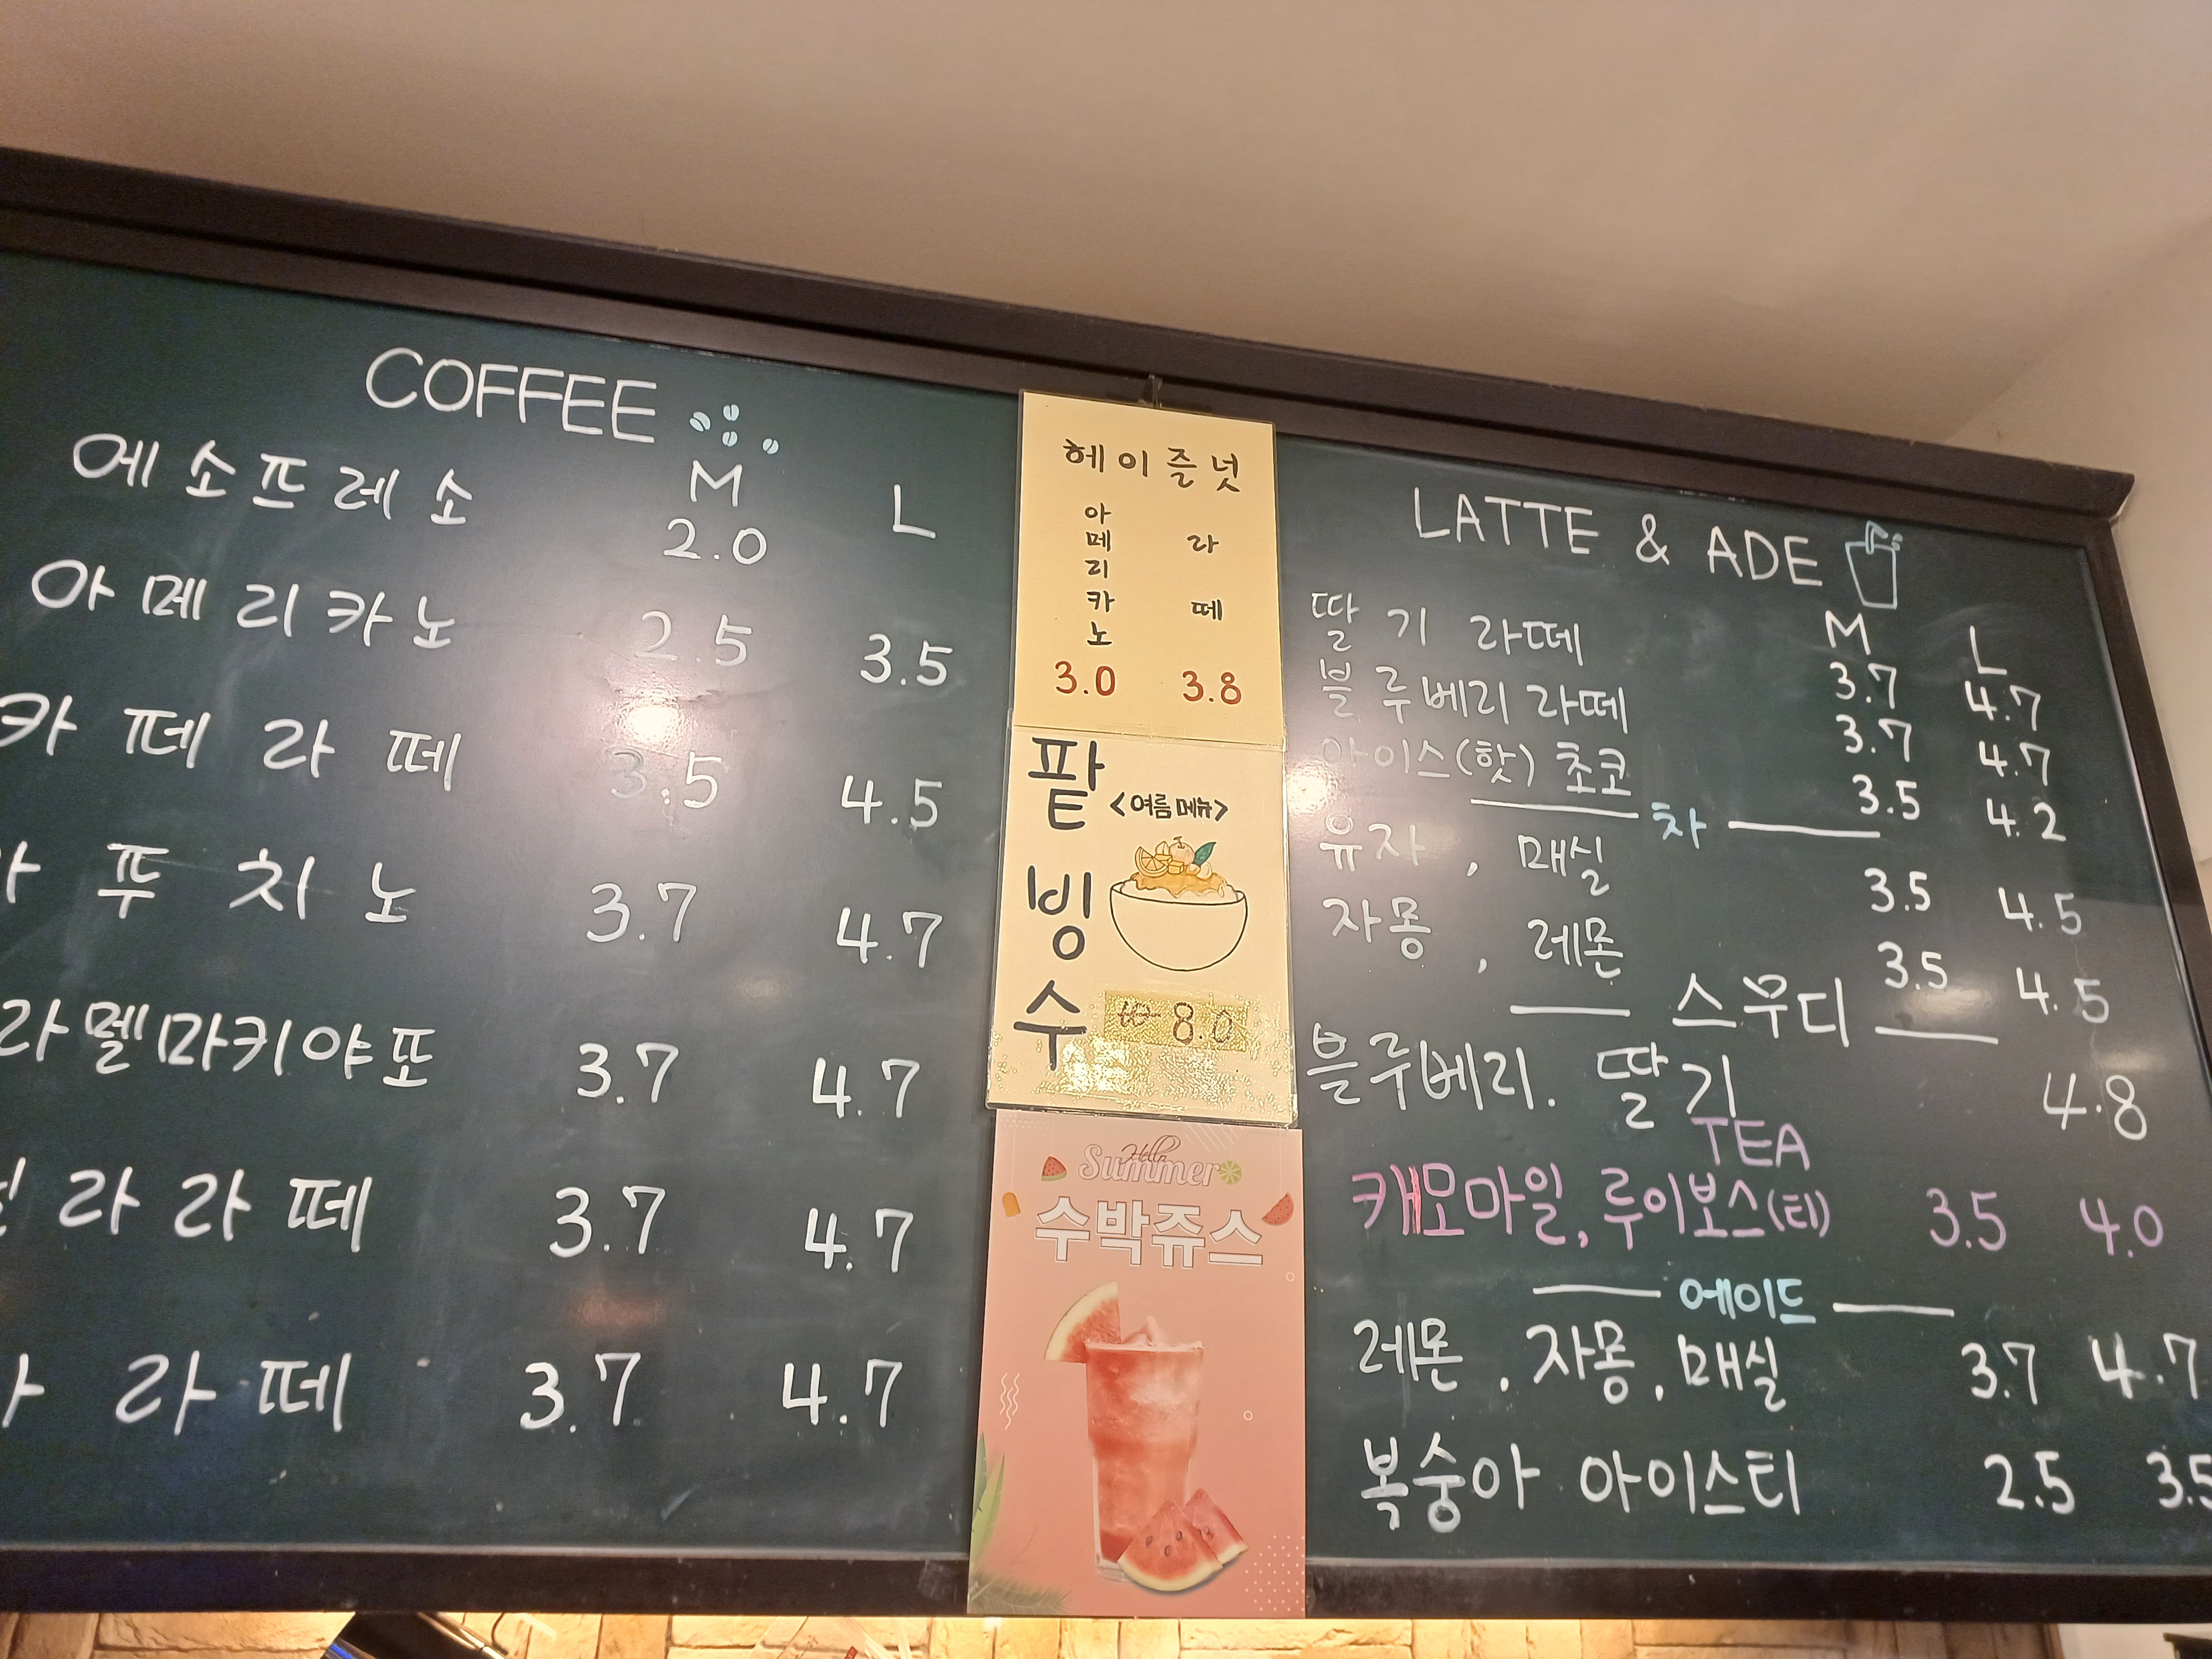 COFFEE
M L
에소프레소 2.0
아메리카노 2.5 3.5
카페라떼 3.5 4.5
푸치노 3.7 4.7
라멜마키야또 3.7 4.7
라라떼 3.7 4.7
라떼 3.7 4.7
헤이즐넛
아메리카노 라떼
3.0 3.8
팥빙수
<여름메뉴>
8.0
Hello
Summer
수박쥬스
LATTE & ADE
M L
딸기 라떼 3.7 4.7
블루베리 라떼 3.7 4.7
아이스(핫) 초코 3.5 4.2
차
유자, 매실 3.5 4.5
자몽, 레몬 3.5 4.5
스무디
블루베리. 딸기 4.8
TEA
캐모마일, 루이보스(티) 3.5 4.0
에이드
레몬, 자몽, 매실 3.7 4.7
복숭아 아이스티 2.5 3.5